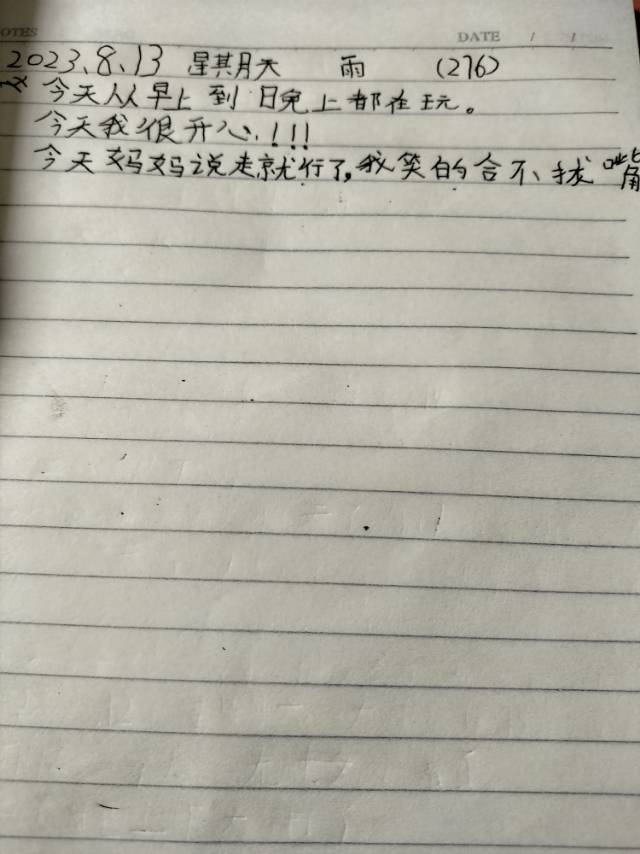 NOTES DATE / /
2023.8.13 星其月天 雨 (276)
今天从早上到日免上都在玩。
今天我很开心!!!
今天妈妈说走就行了,我笑的合不拢嘴